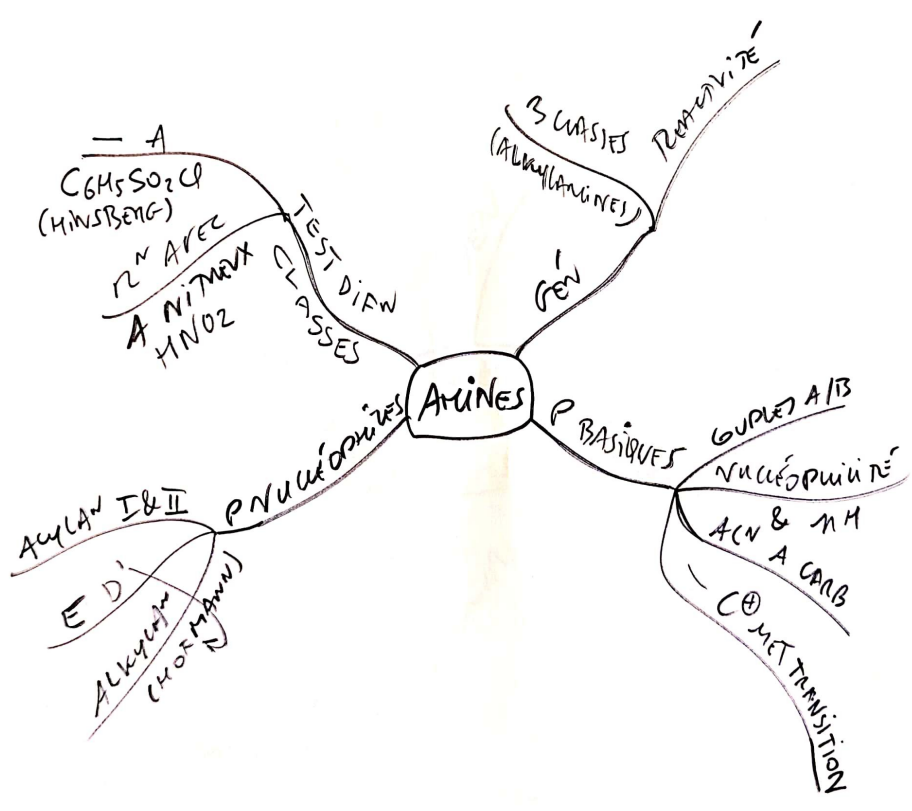 AMINES
GÉN
3 CLASSES
(ALKYLAMINES)
RÉACTIVITÉ
P BASIQUES
COUPLES A/B
NUCLÉOPHILITÉ
& RM
ACN
A CARB
C⊕
MET TRANSITION
P NUCLÉOPHILES
ACYLAN I & II
E D'
ALKYLAN
(HOFMANN)
TEST DIFN
CLASSES
— A
C6H5SO2Cl
(HINSBERG)
RN AVEC
A NITREUX
HNO2